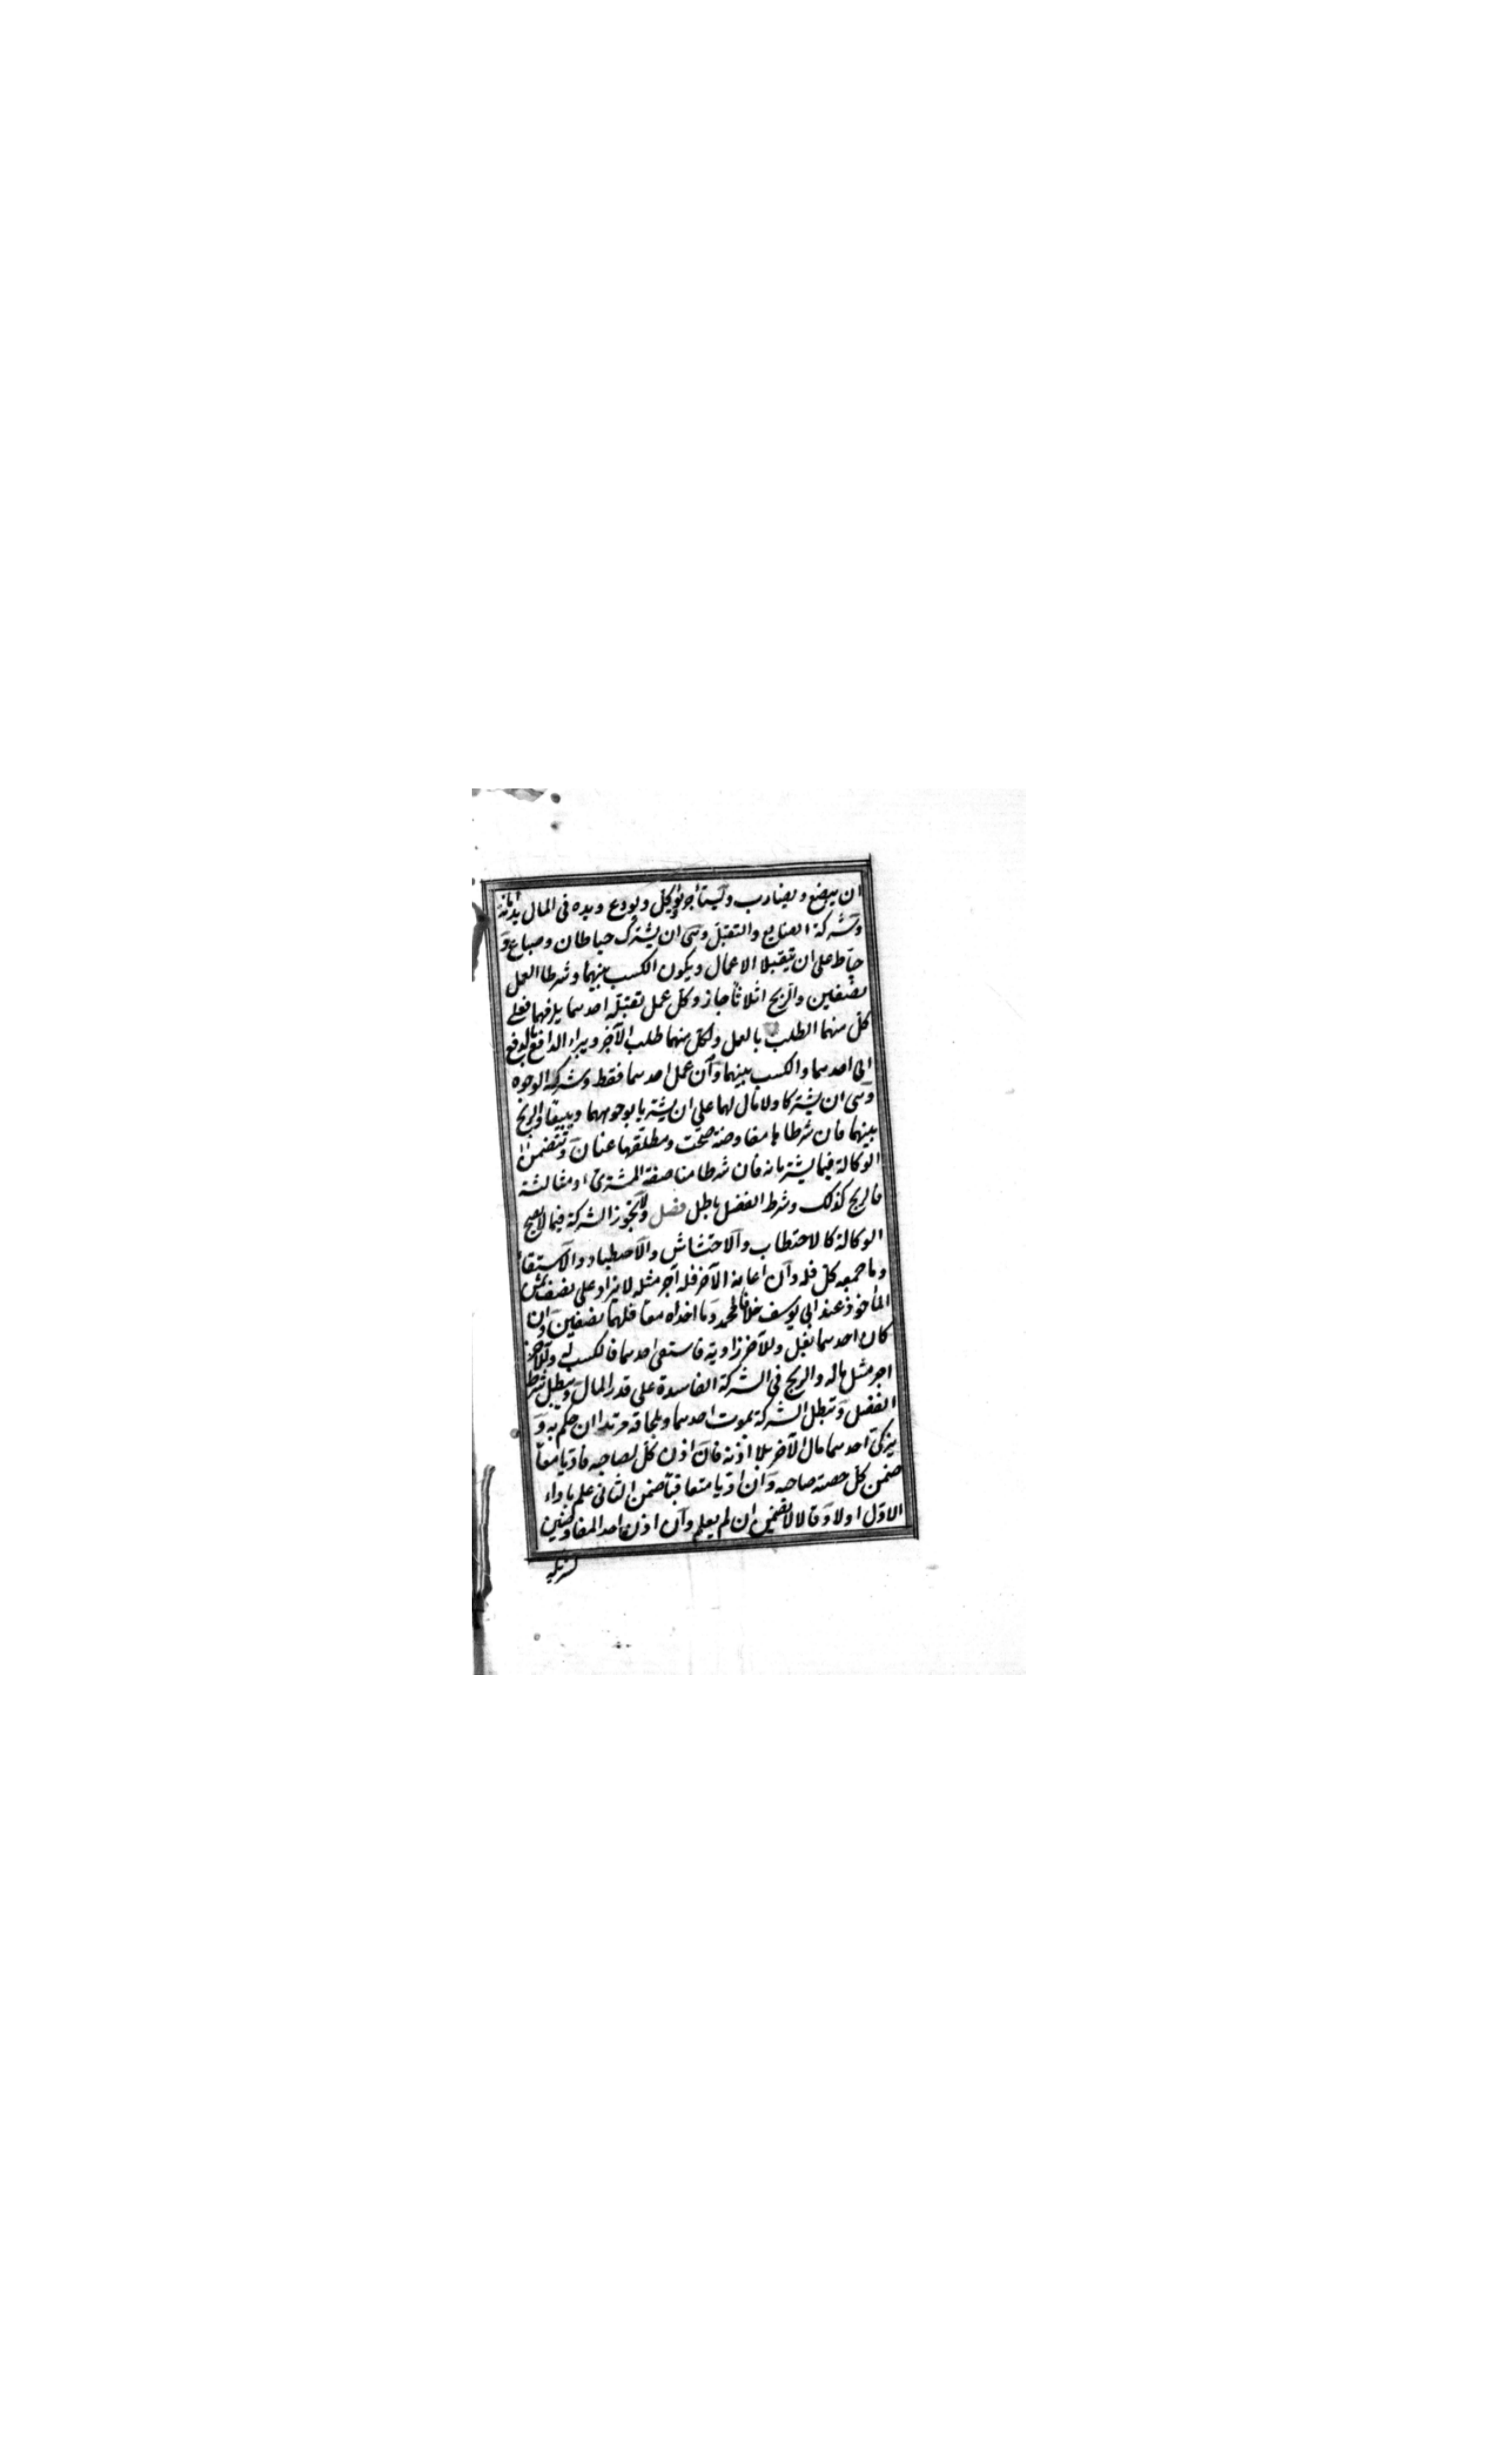 ان يبضع ويضارب ويستأجر ويوكل ويودع ويده فى المال يد امانة
وشركة الصنايع والتقبل وهى ان يشترك خياطان وصباغ و
خياط على ان يتقبلا الاعمال ويكون الكسب بينهما ولو شرطا العمل
نصفين والربح اثلاثا جاز وكل عمل تقبله احدهما يلزمهما فعلى
كل منهما الطلب بالعمل ولكل منهما طلب الاجر ويبراء الدافع بالدفع
الى احدهما والكسب بينهما وان عمل احدهما فقط وشركة الوجوه
وهى ان يشتركا ولا مال لهما على ان يشتريا بوجوههما ويبيعا والربح
بينهما فان شرطاها مفاوضة صحت ومطلقها عنان وتتضمن
الوكالة فيما يشتريانه فان شرطا مناصفة المشترى او مثالثته
فالربح كذلك وشرط الفضل باطل فصل ولا تجوز الشركة فيما لا تصح
الوكالة كالاحتطاب والاحتشاش والاصطياد والاستقاء
وما جمعه كل فله وان اعانه الآخر فله اجر مثله لا يزاد على نصف ثمن
المأخوذ عند ابى يوسف خلافا لمحمد وما اخذاه معا فلهما نصفين وان
كان لاحدهما بغل وللآخر زاوية فاستقى احدهما فالكسب له وللآخر
اجر مثل ماله والربح فى الشركة الفاسدة على قدر المال ويبطل شرط
الفضل وتبطل الشركة بموت احدهما وبلحاقه مرتدا ان حكم به و
يزكى احدهما مال الآخر بلا اذنه فان اذن كل لصاحبه فاديا معا
ضمن كل حصة صاحبه وان اديا متعاقبا ضمن الثانى علم باداء
الاول اولا وقالا لا يضمن ان لم يعلم وان اذن احد المفاوضين
لشريكه